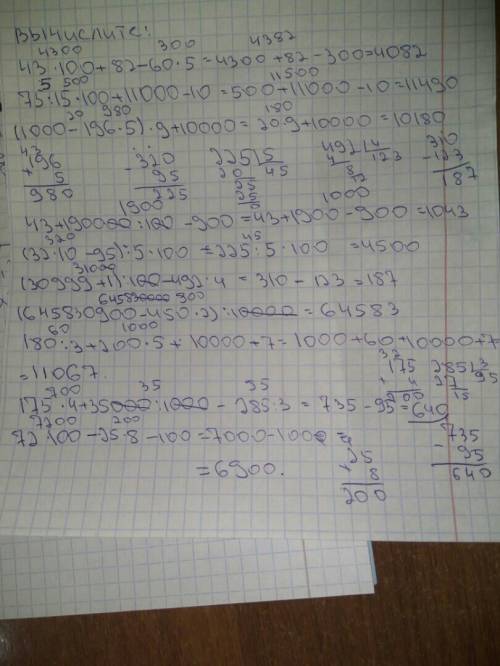 Вычислите:
4300 300 4382
43·100+82-60·5=4300+82-300=4082
5 500 11500
75:15·100+11000-10=500+11000-10=11490
20 980 180
(1000-196·5)·9+10000=20·9+10000=10180
43
196 -320 225|5 492|4 310
+ 5 95 20 45 4 123 -123
980 225 25 8 187
25 12
1900 0 1000
43+190000:100-900=43+1900-900=1043
320 45
(32·10-95):5·100=225:5·100=4500
31000
(30999+1):100-492:4=310-123=187
645830000 900
(645830900-450·2):10000=64583
60 1000
180:3+200·5+10000+7=1000+60+10000+7=
=11067.
700 35 95
175·4+35000:1000-285:3=735-95=640
32
175 285|3
4 27 95
700 15
7200 200
72·100-25·8-100=7000-100=
=6900.
4
25 735
8 - 95
200 640